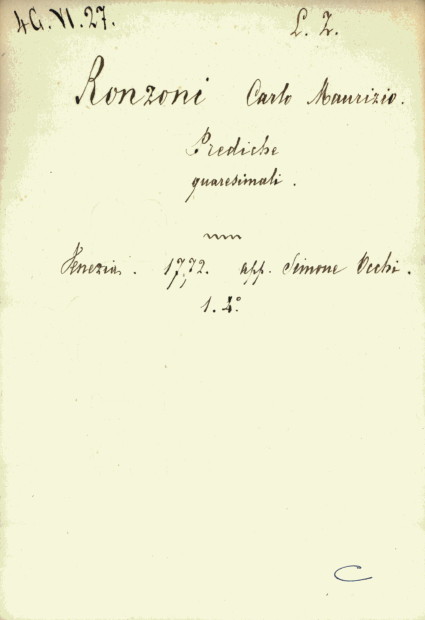 4G.VI.27. L. Z.
Ronzoni Carlo Maurizio.
Prediche
quaresimali.
Venezia. 1772. app. Simone Occhi.
1. 4°
C